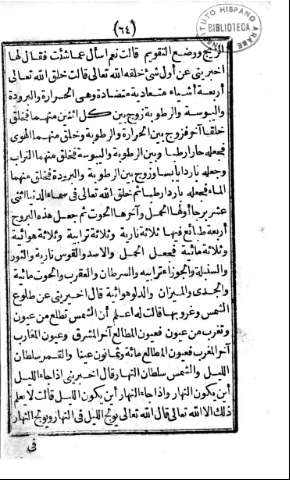 (٦٤)
INSTITUTO HISPANO ARABE
BIBLIOTECA
الزيج ووضع التقويم قالت نعم اسأل عما شئت فقال لها
اخبريني عن أول شئ خلقه الله تعالى قالت خلق الله تعالى
أربعة أشياء متعادية متضادة وهي الحرارة والبرودة
واليبوسة والرطوبة زوج بين كل اثنين منهما فخلق
خلقا آخر فزوج بين الحرارة والرطوبة وخلق منهما الهوى
فجعله حارا رطبا وبين الرطوبة واليبوسة فخلق منهما التراب
وجعله باردا يابسا وزوج بين الرطوبة والبرودة فخلق منهما
الماء فجعله باردا رطبا ثم خلق الله تعالى في سماء الدنيا اثنى
عشر برجا أولها الحمل وآخرها الحوت ثم جعل هذه البروج
أربعة طبائع فيها ثلاثة نارية وثلاثة ترابية وثلاثة هوائية
وثلاثة مائية فجعل الحمل والاسد والقوس نارية والثور
والسنبلة والجوزا ترابيه والسرطان والعقرب والحوت مائية
والجدى والميزان والدلو هوائية قال اخبريني عن طلوع
الشمس وغروبها قالت له اعلم أن الشمس تطلع من عيون
وتغرب من عيون فعيون المطالع آخر المشرق وعيون المغارب
آخر المغرب فعيون المطالع مائة وثمانون عينا والقمر سلطان
الليل والشمس سلطان النهار قال اخبريني اذا جاء الليل
أين يكون النهار واذا جاء النهار أين يكون الليل قالت لا يعلم
ذلك الا الله تعالى قال الله تعالى يولج الليل في النهار ويولج النهار
في